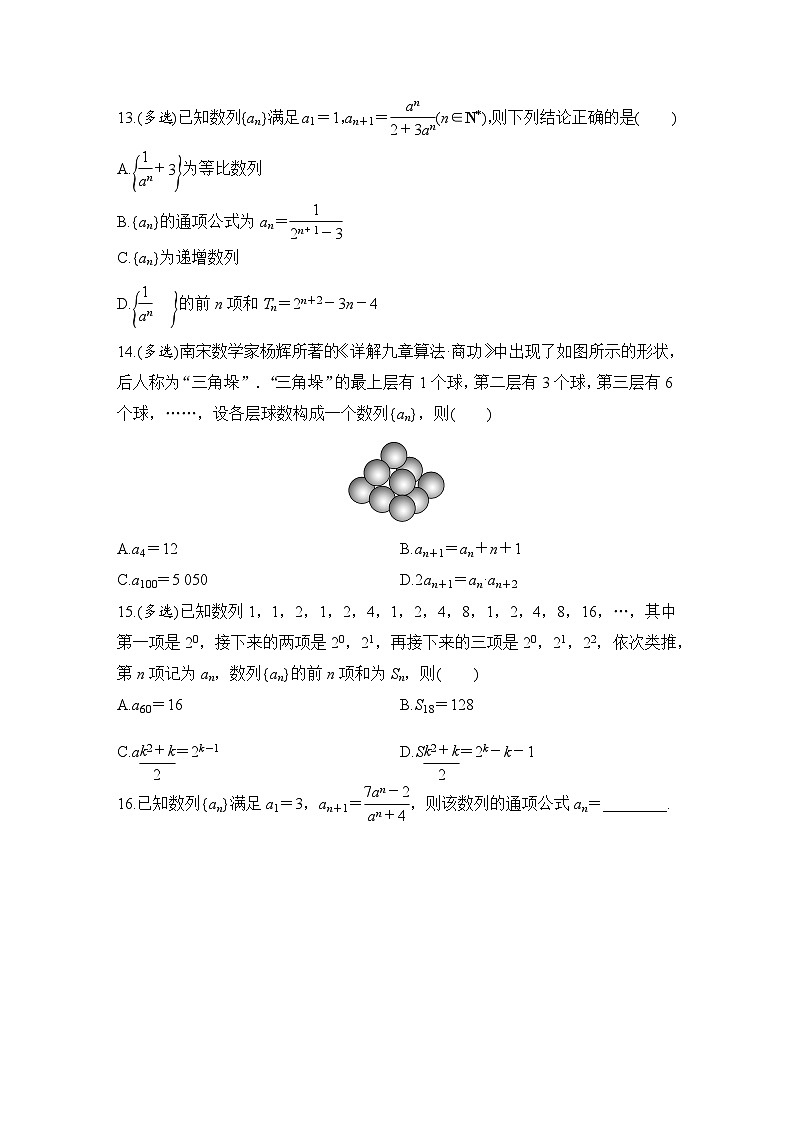 13.(多选)已知数列{aₙ}满足a₁=1,aₙ₊₁=aⁿ/(2+3aⁿ)(n∈N*),则下列结论正确的是(　　)
A.{1/aⁿ+3}为等比数列
B.{aₙ}的通项公式为aₙ=1/(2ⁿ⁺¹-3)
C.{aₙ}为递增数列
D.{1/aⁿ　}的前n项和Tₙ=2ⁿ⁺²-3n-4
14.(多选)南宋数学家杨辉所著的《详解九章算法·商功》中出现了如图所示的形状,
后人称为“三角垛”.“三角垛”的最上层有1个球,第二层有3个球,第三层有6
个球,……,设各层球数构成一个数列{aₙ},则(　　)
A.a₄=12　　B.aₙ₊₁=aₙ+n+1
C.a₁₀₀=5 050　　D.2aₙ₊₁=aₙ·aₙ₊₂
15.(多选)已知数列1,1,2,1,2,4,1,2,4,8,1,2,4,8,16,…,其中
第一项是2⁰,接下来的两项是2⁰,2¹,再接下来的三项是2⁰,2¹,2²,依次类推,
第n项记为aₙ,数列{aₙ}的前n项和为Sₙ,则(　　)
A.a₆₀=16　　B.S₁₈=128
C.a(k2+k)/2=2ᵏ⁻¹　　D.S(k2+k)/2=2ᵏ-k-1
16.已知数列{aₙ}满足a₁=3,aₙ₊₁=(7aⁿ-2)/(aⁿ+4),则该数列的通项公式aₙ=________.